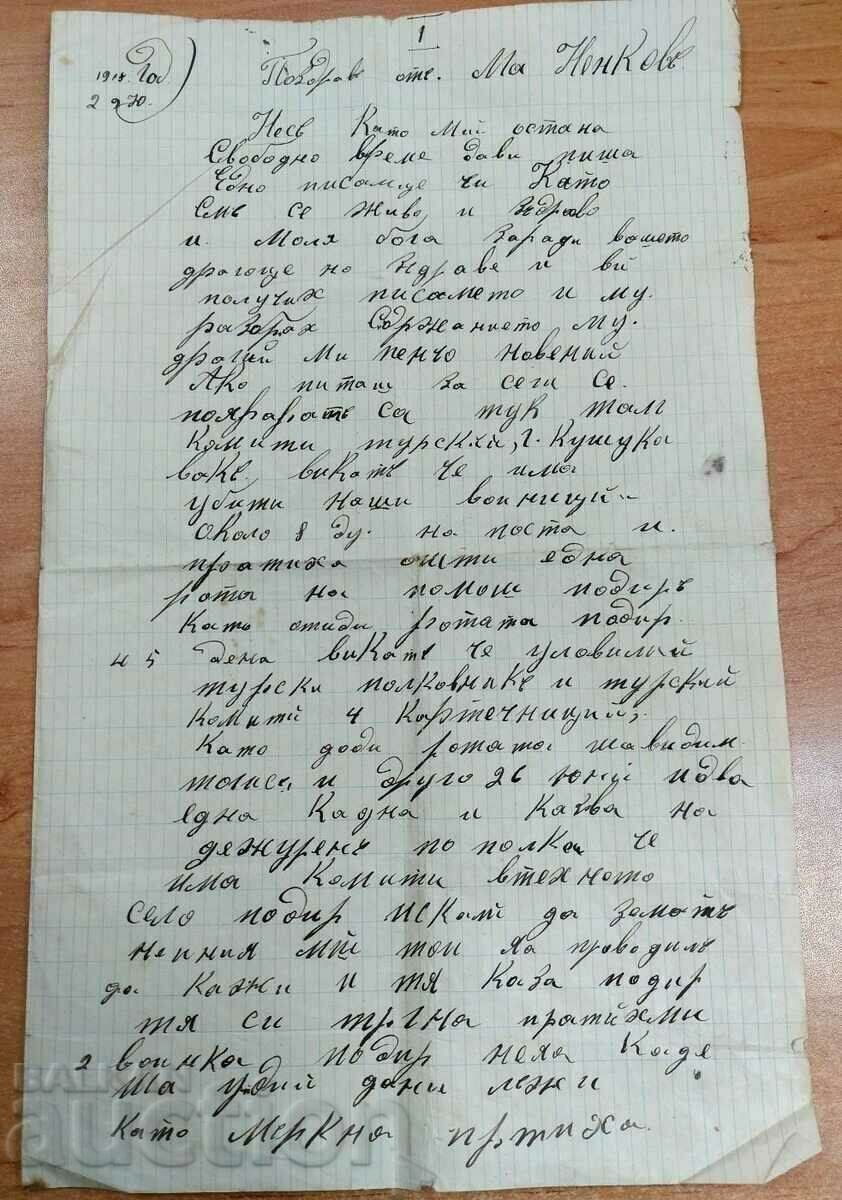 I
1918. Год.
2 970.
Поздравъ отъ. Ма Ненковъ
Носъ Като мий остана
Свободно време дави пиша
Едно писамце чи Като
Смъ се живо, и здраво
и. Моля бога заради вашето
драгоце но здраве и вй
получих писамето и му.
разбрах Сържанието му.
драгий Ми пенчо
Ако питаш за сеги се.
са тук там
Комити турский, г. Кушука
викатъ че има
убити наши воиници
около 8 ду. на поста и.
пратиха ошти една
рота на помош подиръ
Като отиди ротата подир.
4 5 дена викатъ че уловилий
турски полковникъ и турский
Комити 4 Картечниций,
Като доди ротата ша видим
тогис, и друго 26 юний идва
една Кадна и Казва на
дежуренъ по полка че
има Комити в техното
село подир искат да зематъ
нейния той я проводилъ
да Кажи и тя Каза подир
тя си тргна пратихми
2 воинка подир нея Каде
ша леки
Като меркна пртиха.
BALKAN
auction